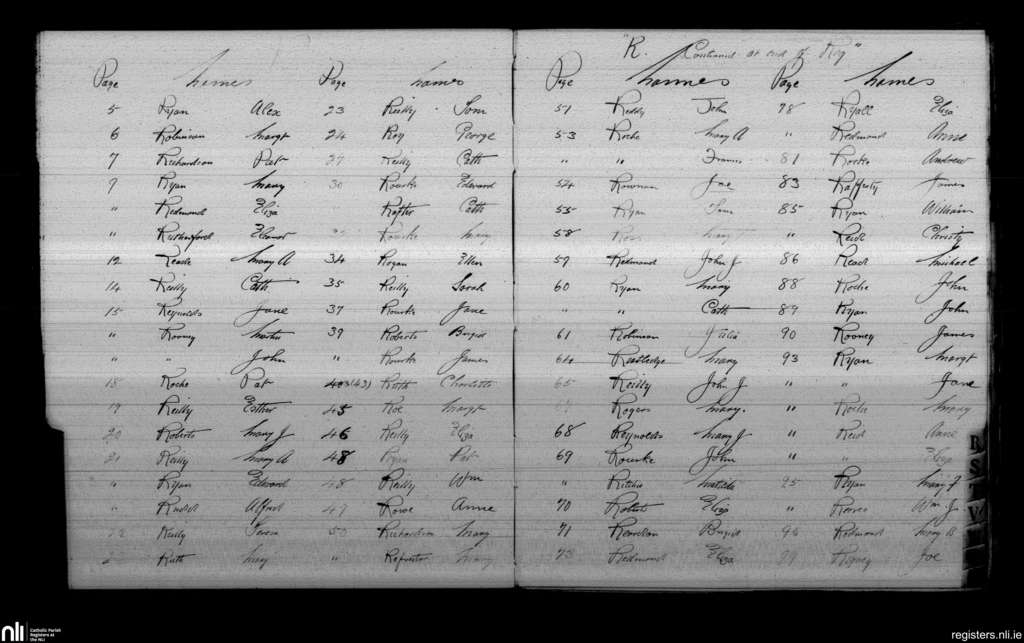 "R. Continued at end of Reg"
Page Names Page Names
5 Ryan Alex 23 Reilly Tom
6 Robinson Margt 24 Roy George
7 Richardson Pat 27 Reilly Cath
9 Ryan Mary 30 Rourke Edward
" Redmond Eliza Rafter Cath
" Rutherford Eleanor Rourke Mary
12 Reade Mary A 34 Rogan Ellen
14 Reilly Cath 35 Reilly Sarah
15 Reynolds Jane 37 Rourke Jane
" Rooney Martin 39 Roberts Brigid
" " John " Rourke James
18 Roche Pat (43) Ruth Charlotte
19 Reilly Esther 45 Roe Margt
20 Roberts Mary J 46 Reilly Eliza
21 Reilly Mary A 48 Ryan Pat
" Ryan Edward 48 Reilly Wm
" Alfred 49 Rowe Annie
22 Reilly Teresa 50 Richardson Mary
Ruth Mary " Mary
Page Names Page Names
51 Reddy John 78 Ryall Eliza
53 Roche Mary A " Redmond Anne
" " Frances 81 Roche Andrew
54 Rowman Joe 83 Rafferty James
55 Ryan 85 Ryan William
58 Ross Mary " Reid Christy
59 Redmond John J 86 Read Michael
60 Ryan Mary 88 Roche John
" " Cath 89 Ryan John
61 Robinson Julia 90 Rooney James
64 Rutledge Mary 93 Ryan Margt
65 Reilly John J " " Jane
Rogers Mary. " Roche Mary
68 Reynolds Mary J " Reid Anne
69 Rourke John " " Eliza
" Ritchie Matilda 95 Ryan Mary F
70 Roberts Eliza " Reeves Wm J.
71 Reardon Brigid 96 Redmond Mary B
73 Redmond Eliza 99 Rooney Joe
R
S
T
V
nli
Catholic Parish
Registers at
the NLI
registers.nli.ie